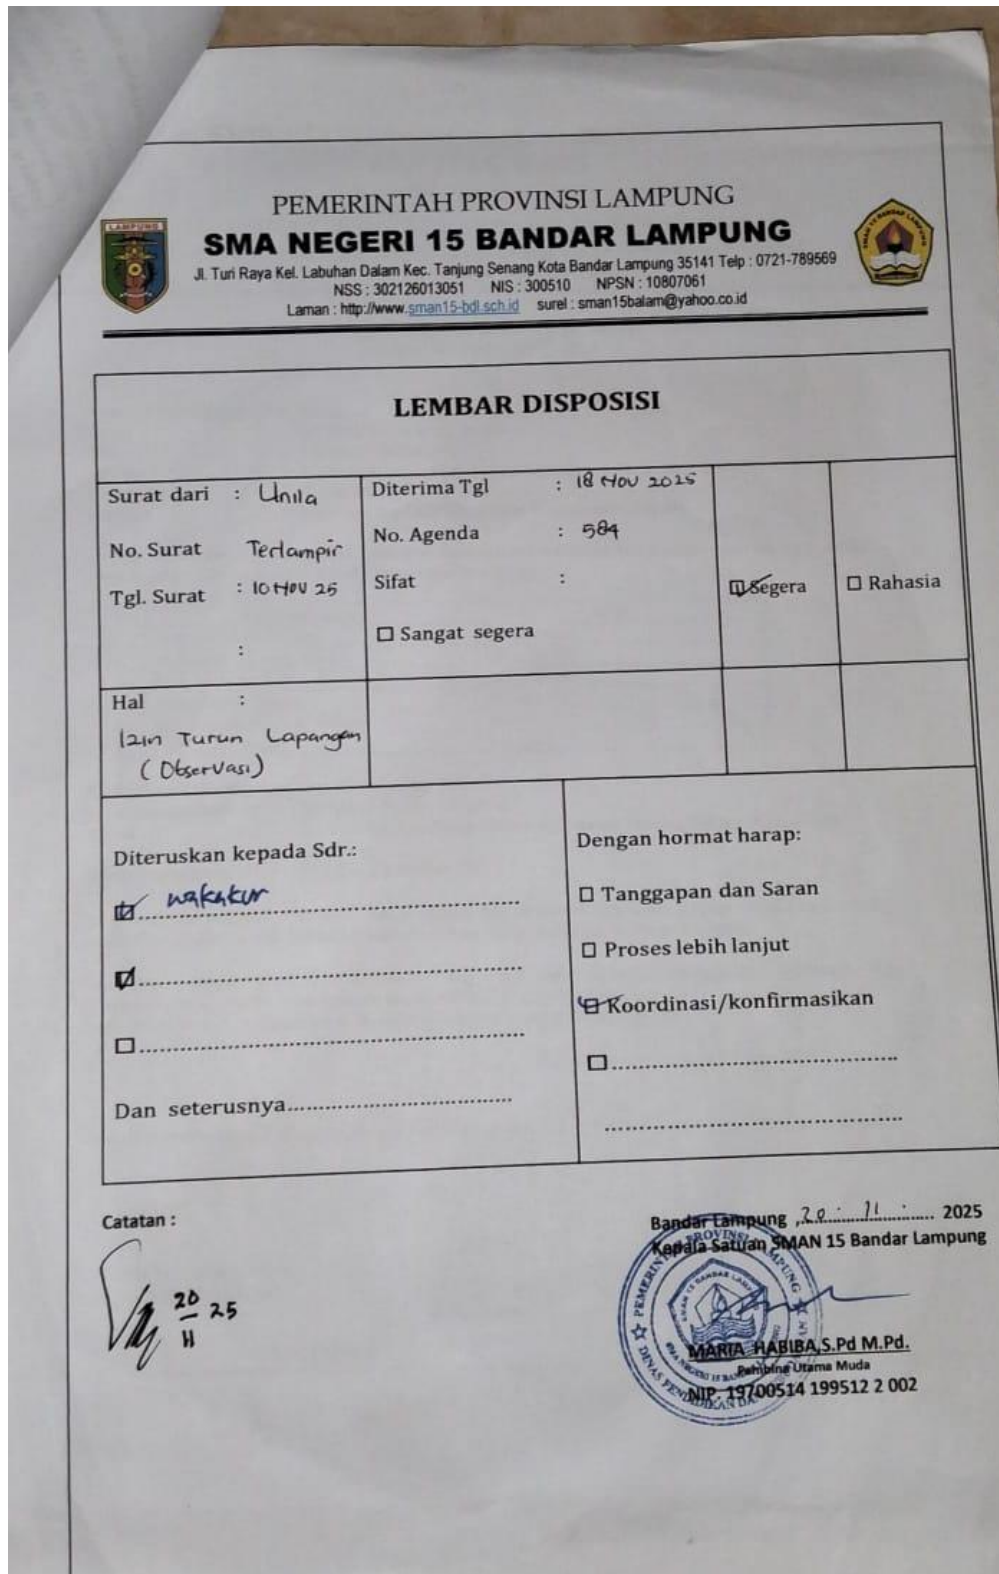 PEMERINTAH PROVINSI LAMPUNG
SMA NEGERI 15 BANDAR LAMPUNG
Jl. Turi Raya Kel. Labuhan Dalam Kec. Tanjung Senang Kota Bandar Lampung 35141 Telp : 0721-789569
NSS : 302126013051 NIS : 300510 NPSN : 10807061
Laman : http://www.sman15-bdl.sch.id surel : sman15balam@yahoo.co.id
LAMPUNG
SMAN 15 BANDAR LAMPUNG
LEMBAR DISPOSISI
Surat dari : Unila
No. Surat Terlampir
Tgl. Surat : 10 Nov 25
:
Diterima Tgl : 18 Nov 2025
No. Agenda : 584
Sifat :
☐ Sangat segera
Segera
☐ Rahasia
Hal :
Izin Turun Lapangan
(Observasi)
Diteruskan kepada Sdr.:
☑ wakakur
☑ ..........
☐ ..........
Dan seterusnya..........
Dengan hormat harap:
☐ Tanggapan dan Saran
☐ Proses lebih lanjut
☑ Koordinasi/konfirmasikan
☐ ..........
..........
Catatan :
20/11 25
Bandar Lampung, 20 · 11 · 2025
Kepala Satuan SMAN 15 Bandar Lampung
MARIA HABIBA,S.Pd M.Pd.
Pembina Utama Muda
NIP. 19700514 199512 2 002
PEMERINTAH PROVINSI LAMPUNG
SMA NEGERI 15 BANDAR LAMPUNG